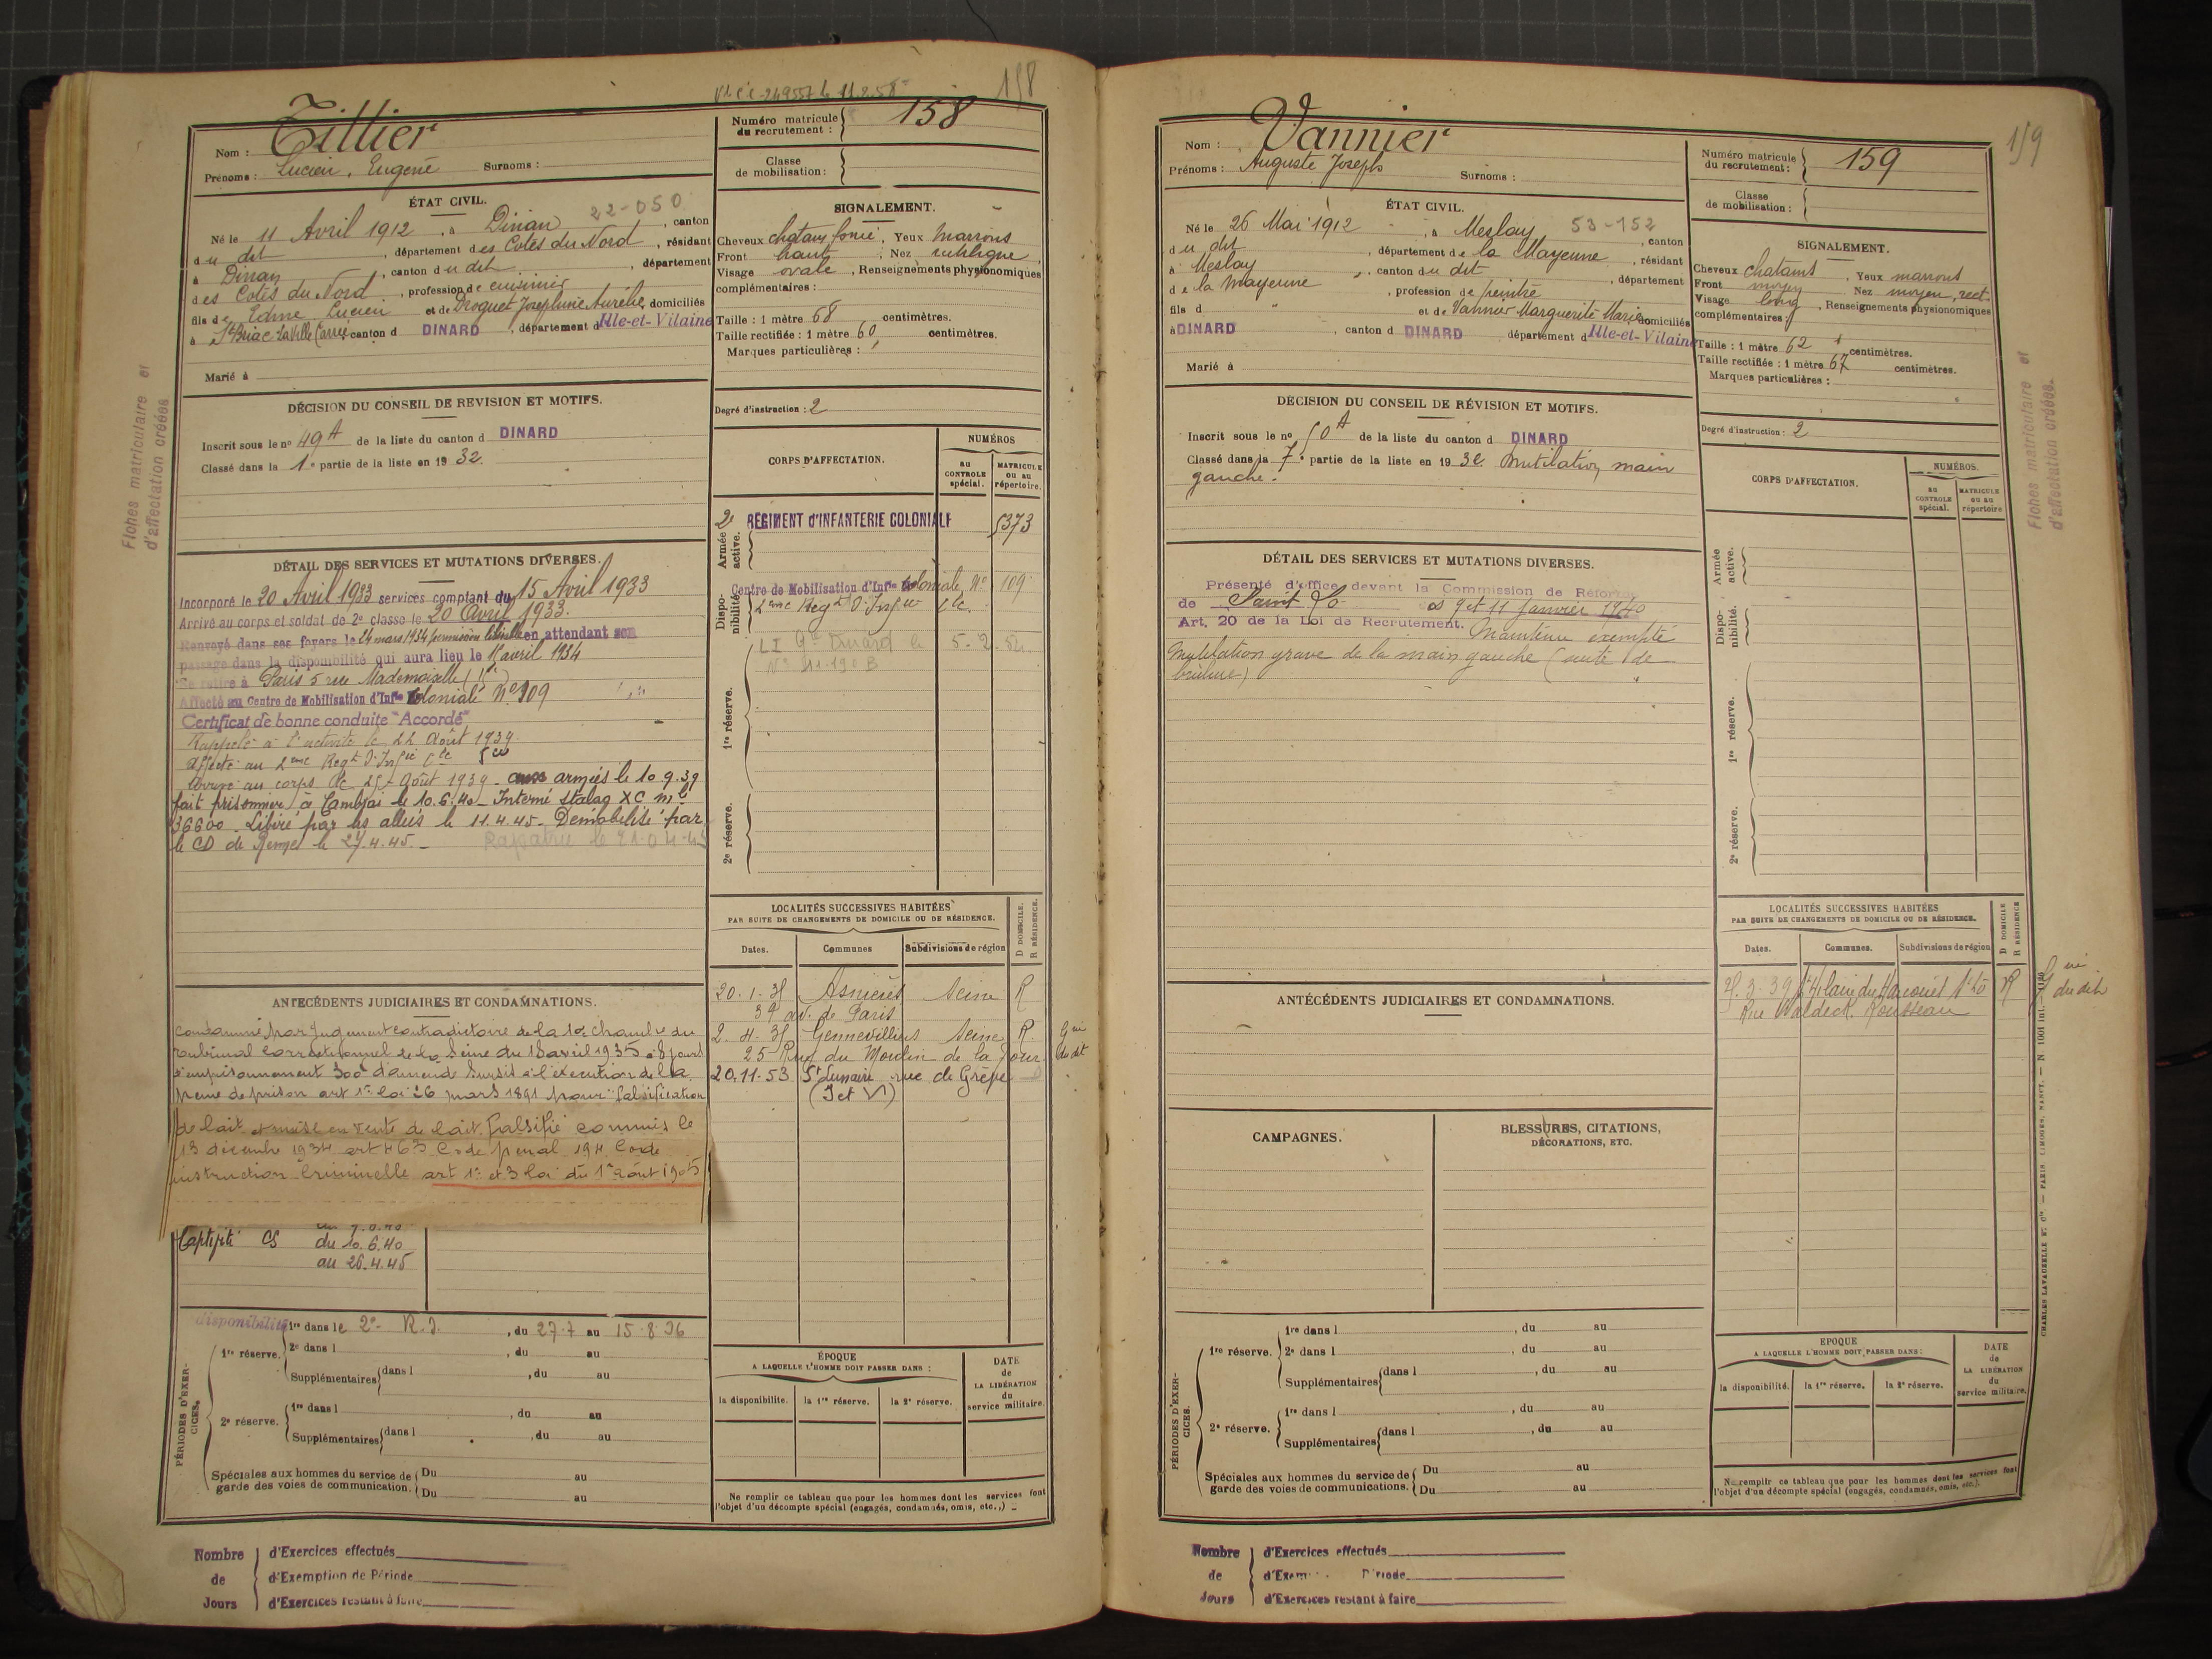 158
Nom : Tillier
Prénoms : Lucien, Eugene Surnoms :
Numéro matricule du recrutement : 158
Classe de mobilisation :
ÉTAT CIVIL.
22-050
Né le 11 Avril 1912, à Dinan, canton
du dit, département des Côtes du Nord, résidant
à Dinan, canton du dit, département
des Cotes du Nord, profession de cuisinier
fils de Edme Lucien et de Droguet Josephine Aurélie, domiciliés
à St Briac La Ville, canton d DINARD, département d'Ille-et-Vilaine
Marié à
SIGNALEMENT.
Cheveux chatain foncé, Yeux Marrons
Front haut, Nez rectiligne,
Visage ovale, Renseignements physionomiques
complémentaires :
Taille : 1 mètre 68 centimètres.
Taille rectifiée : 1 mètre 60 centimètres.
Marques particulières :
Degré d'instruction : 2
DÉCISION DU CONSEIL DE REVISION ET MOTIFS.
Inscrit sous le no 49 A de la liste du canton d DINARD
Classé dans la 1e partie de la liste en 1932.
CORPS D'AFFECTATION.
NUMÉROS
AU CONTROLE spécial.
MATRICULE OU AU répertoire.
Armée active.
2e RÉGIMENT d'INFANTERIE COLONIALE 5373
Disponibilité
Centre de Mobilisation d'Infie Coloniale No 109
2eme Regt D'Infie Cle.
1re réserve.
2e réserve.
DÉTAIL DES SERVICES ET MUTATIONS DIVERSES.
Incorporé le 20 Avril 1933 services comptant du 15 Avril 1933
Arrivé au corps et soldat de 2e classe le 20 Avril 1933.
Renvoyé dans ses foyers le 24 mars 1934 permission libérable en attendant son
passage dans la disponibilité qui aura lieu le 15 avril 1934
Se retire à Paris 5 rue Mademoiselle
Affecté au Centre de Mobilisation d'Infie Coloniale No 109
Certificat de bonne conduite "Accordé"
Rappelé à l'activité le 22 Août 1939
Affecté au 2eme Regt D'Infie Cle
Arrivé au corps le 25 Août 1939 - aux armées le 10.9.39
fait prisonnier à Cambrai le 10.6.40 - Interné Stalag XC mle
36600 - Libéré par les alliés le 11.4.45 - Démobilisé par
le CD de Rennes le 27.4.45 -
Rapatrié le 21.04.45
LOCALITÉS SUCCESSIVES HABITÉES
PAR SUITE DE CHANGEMENTS DE DOMICILE OU DE RÉSIDENCE.
D DOMICILE. R RÉSIDENCE.
Dates. Communes Subdivisions de région
20.1.35 Asnières Seine R
39 av. de Paris
2.4.35 Gennevilliers Seine R.
25 Rue du Moulin de la Tour
20.11.53 St Lunaire rue de Grève
(I et V)
ANTÉCÉDENTS JUDICIAIRES ET CONDAMNATIONS.
Condamné par Jugement contradictoire de la 10e chambre du
tribunal correctionnel de la Seine du 18 avril 1935 à 8 jours
d'emprisonnement 300f d'amende Sursis à l'exécution de la
peine de prison art 1er loi 26 mars 1891 pour falsification
de lait et mise en vente de lait falsifié commis le
13 décembre 1934 art 463 Code penal 194 Code
instruction Criminelle art 1er et 3 loi du 1er aout 1905
Captivité CS du 10.6.40
au 26.4.45
PÉRIODES D'EXERCICES.
disponibilité
1re réserve. 1re dans le 2e R.I., du 27.7 au 15.8.36
2e dans l , du au
Supplémentaires dans l , du au
2e réserve. 1re dans l , du au
Supplémentaires dans l , du au
Spéciales aux hommes du service de garde des voies de communication. Du au
Du au
ÉPOQUE
A LAQUELLE L'HOMME DOIT PASSER DANS :
la disponibilité. la 1re réserve. la 2e réserve.
DATE de LA LIBÉRATION du service militaire.
Ne remplir ce tableau que pour les hommes dont les services font
l'objet d'un décompte spécial (engagés, condamnés, omis, etc.,)
Nombre de Jours
d'Exercices effectués
d'Exemption de Période
d'Exercices restant à faire
Fiches matriculaire et
d'affectation créées
159
Nom : Vannier
Prénoms : Auguste Joseph Surnoms :
Numéro matricule du recrutement : 159
Classe de mobilisation :
ÉTAT CIVIL.
Né le 26 Mai 1912, à Meslay 53-152, canton
du dit, département de la Mayenne, résidant
à Meslay, canton du dit, département
de la Mayenne, profession de peintre
fils d et de Vannier Marguerite Marie, domiciliés
à DINARD, canton d DINARD département d'Ille-et-Vilaine
Marié à
SIGNALEMENT.
Cheveux chatains, Yeux marrons
Front moyen Nez moyen, rect.
Visage long, Renseignements physionomiques
complémentaires :
Taille : 1 mètre 62 centimètres.
Taille rectifiée : 1 mètre 67 centimètres.
Marques particulières :
Degré d'instruction : 2
DÉCISION DU CONSEIL DE RÉVISION ET MOTIFS.
Inscrit sous le no 50 A de la liste du canton d DINARD
Classé dans la 7e partie de la liste en 1932 Mutilation main
gauche.
CORPS D'AFFECTATION.
NUMÉROS.
AU CONTROLE spécial.
MATRICULE OU AU répertoire
Armée active.
Disponibilité.
1re réserve.
2e réserve.
DÉTAIL DES SERVICES ET MUTATIONS DIVERSES.
Présenté d'office devant la Commission de Réforme
de Saint Lo des 9 et 11 Janvier 1940
Art. 20 de la Loi de Recrutement. Maintenu exempté
Mutilation grave de la main gauche (suite de
brûlure)
LOCALITÉS SUCCESSIVES HABITÉES
PAR SUITE DE CHANGEMENTS DE DOMICILE OU DE RÉSIDENCE.
D DOMICILE R RÉSIDENCE
Dates. Communes. Subdivisions de région
St Hilaire du Harcouet St Lo R
Rue Waldeck Rousseau
ANTÉCÉDENTS JUDICIAIRES ET CONDAMNATIONS.
CAMPAGNES.
BLESSURES, CITATIONS,
DÉCORATIONS, ETC.
PÉRIODES D'EXERCICES.
1re réserve. 1re dans l , du au
2e dans l , du au
Supplémentaires dans l , du au
2e réserve. 1re dans l , du au
Supplémentaires dans l , du au
Spéciales aux hommes du service de garde des voies de communications. Du au
Du au
EPOQUE
A LAQUELLE L'HOMME DOIT PASSER DANS :
la disponibilité. la 1re réserve. la 2e réserve.
DATE de LA LIBÉRATION du service militaire.
Ne remplir ce tableau que pour les hommes dont les services font
l'objet d'un décompte spécial (engagés, condamnés, omis, etc.).
Nombre de Jours
d'Exercices effectués
d'Exercices restant à faire
Fiches matriculaire et
d'affectation créées.
CHARLES LAVAUZELLE ET Cie — PARIS, LIMOGES, NANCY.